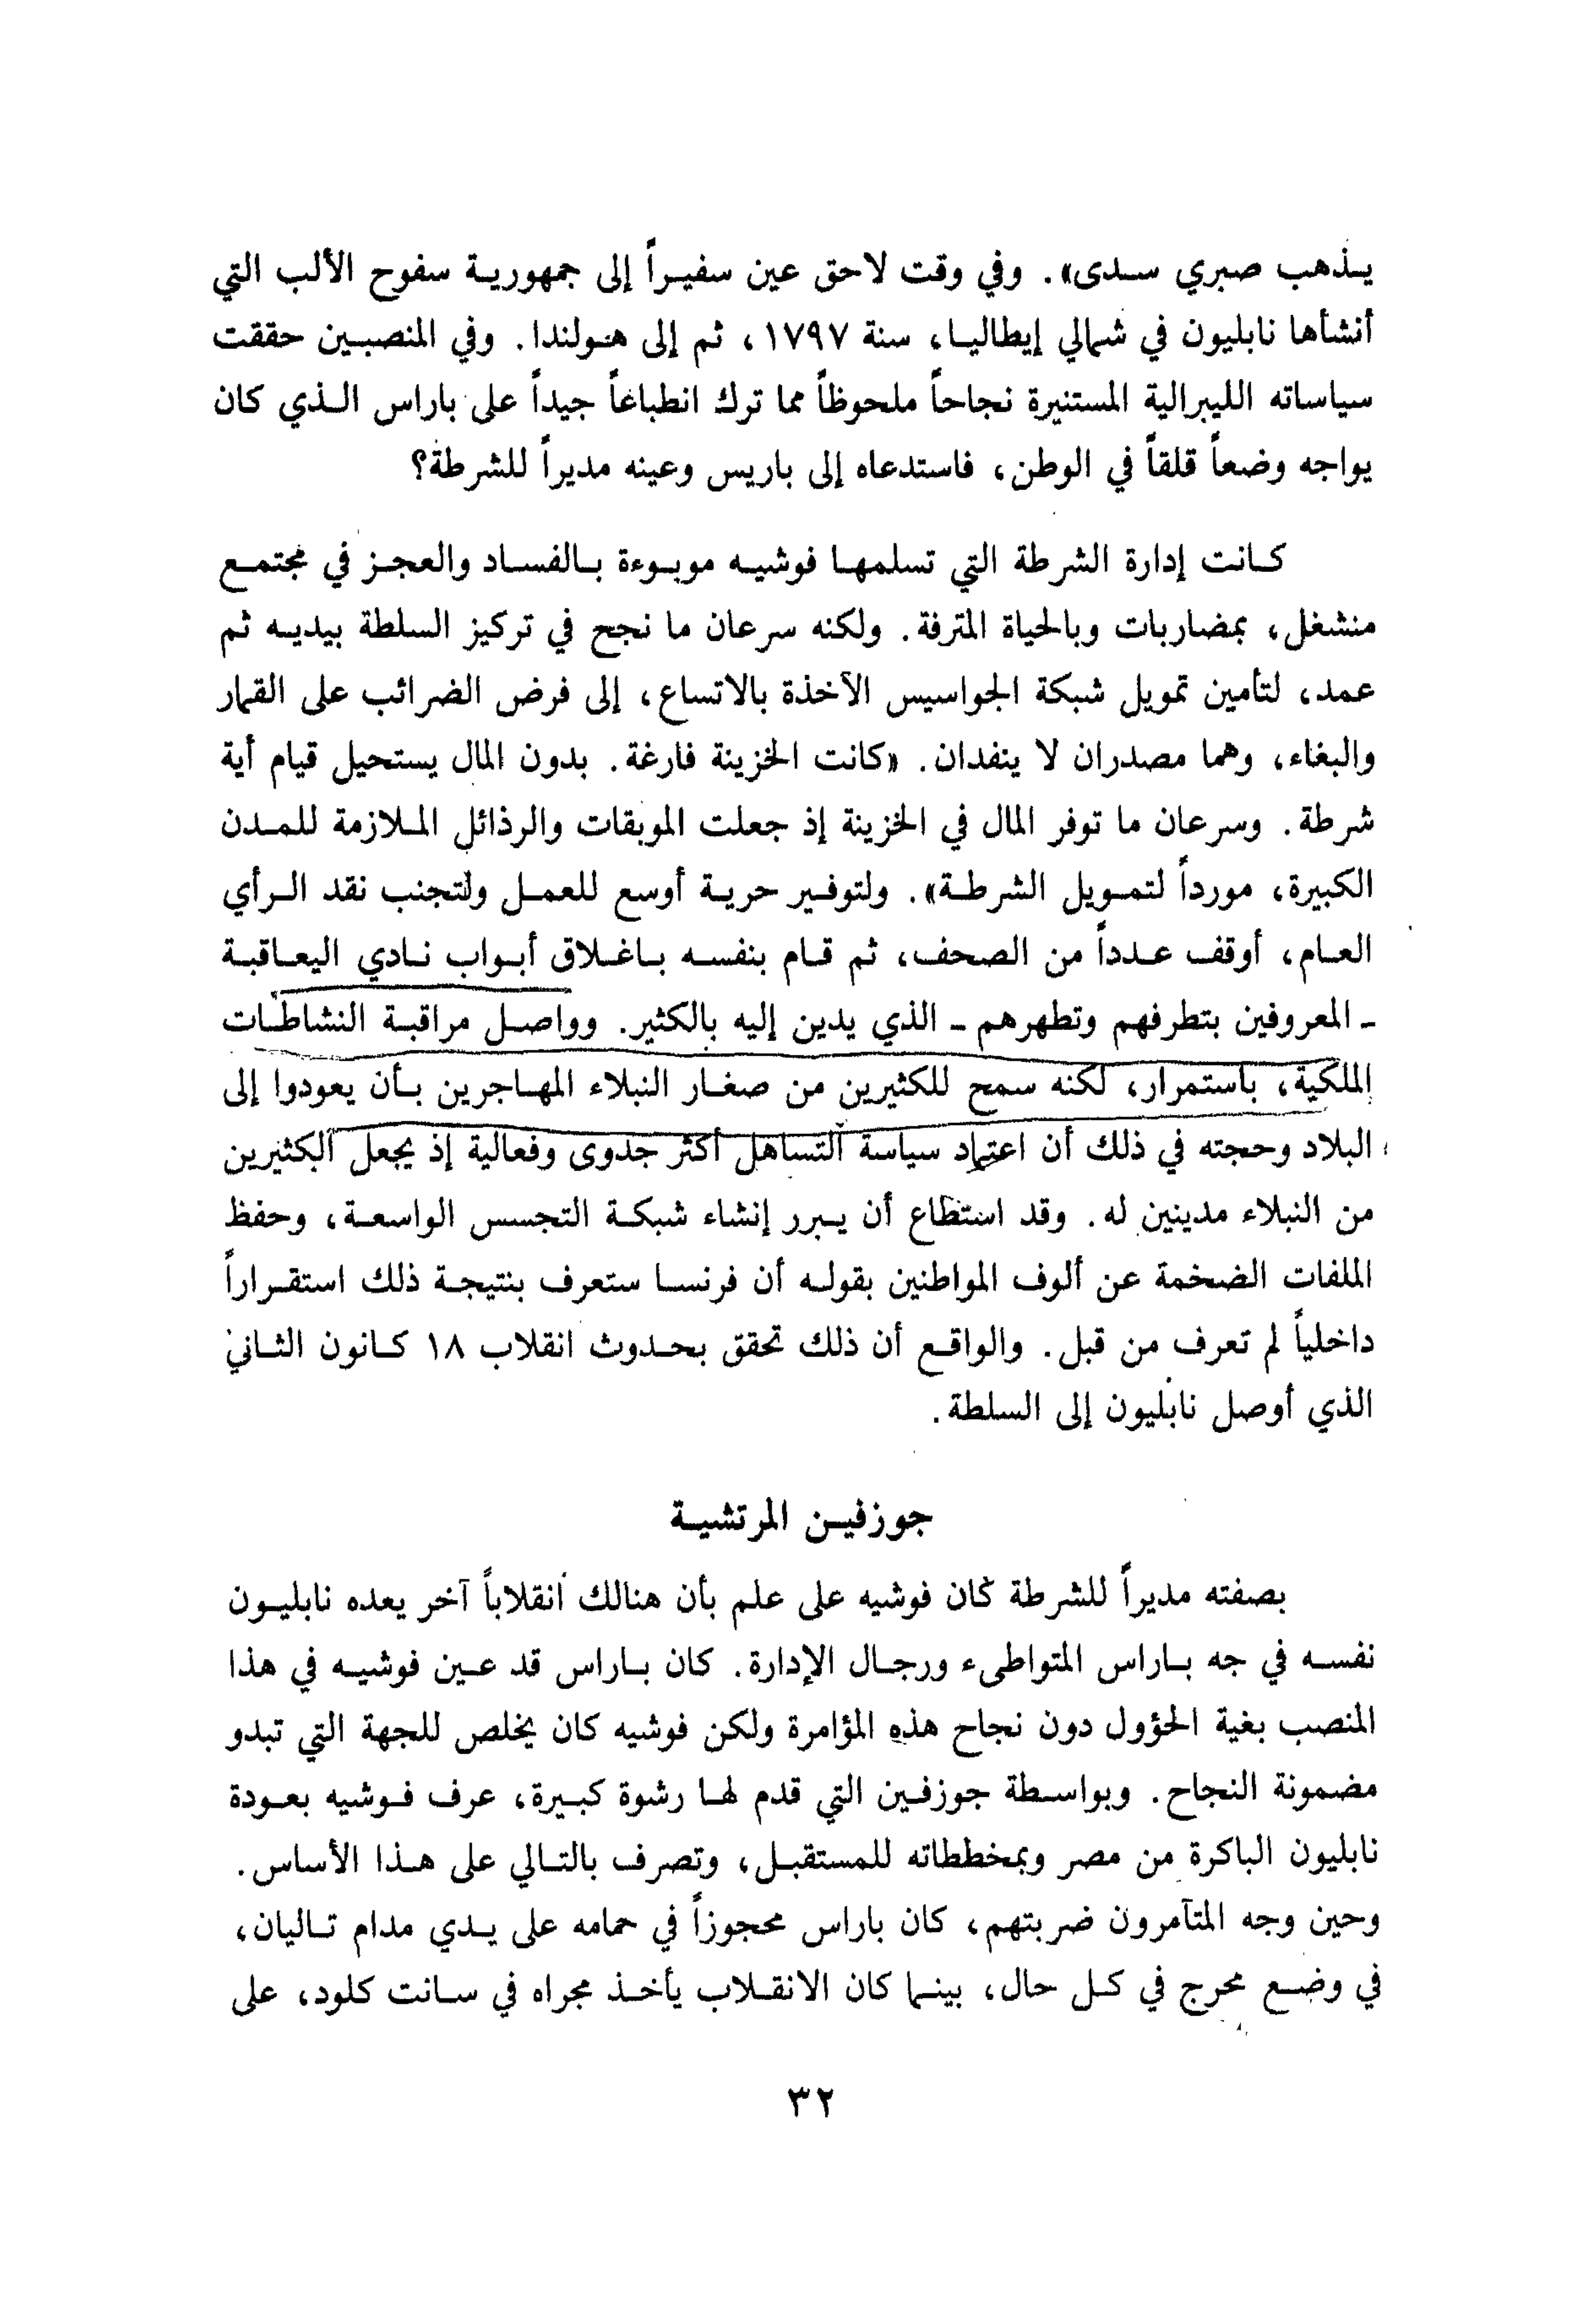 يذهب صبري سدى». وفي وقت لاحق عين سفيراً إلى جمهورية سفوح الألب التي
أنشأها نابليون في شمالي إيطاليا، سنة ١٧٩٧، ثم إلى هولندا. وفي المنصبين حققت
سياساته الليبرالية المستنيرة نجاحاً ملحوظاً مما ترك انطباعاً جيداً على باراس الذي كان
يواجه وضعاً قلقاً في الوطن، فاستدعاه إلى باريس وعينه مديراً للشرطة؟
كانت إدارة الشرطة التي تسلمها فوشيه موبوءة بالفساد والعجز في مجتمع
منشغل، بمضاربات وبالحياة المترفة. ولكنه سرعان ما نجح في تركيز السلطة بيديه ثم
عمد، لتأمين تمويل شبكة الجواسيس الآخذة بالاتساع، إلى فرض الضرائب على القمار
والبغاء، وهما مصدران لا ينفدان. «كانت الخزينة فارغة. بدون المال يستحيل قيام أية
شرطة. وسرعان ما توفر المال في الخزينة إذ جعلت الموبقات والرذائل الملازمة للمدن
الكبيرة، مورداً لتمويل الشرطة». ولتوفير حرية أوسع للعمل ولتجنب نقد الرأي
العام، أوقف عدداً من الصحف، ثم قام بنفسه باغلاق أبواب نادي اليعاقبة
- المعروفين بتطرفهم وتطهرهم - الذي يدين إليه بالكثير. وواصل مراقبة النشاطات
الملكية، باستمرار، لكنه سمح للكثيرين من صغار النبلاء المهاجرين بأن يعودوا إلى
البلاد وحجته في ذلك أن اعتماد سياسة التساهل أكثر جدوى وفعالية إذ يجعل الكثيرين
من النبلاء مدينين له. وقد استطاع أن يبرر إنشاء شبكة التجسس الواسعة، وحفظ
الملفات الضخمة عن ألوف المواطنين بقوله أن فرنسا ستعرف بنتيجة ذلك استقراراً
داخلياً لم تعرف من قبل. والواقع أن ذلك تحقق بحدوث انقلاب ١٨ كانون الثاني
الذي أوصل نابليون إلى السلطة.
جوزفين المرتشية
بصفته مديراً للشرطة كان فوشيه على علم بأن هنالك انقلاباً آخر يعده نابليون
نفسه في جه باراس المتواطىء ورجال الإدارة. كان باراس قد عين فوشيه في هذا
المنصب بغية الحؤول دون نجاح هذه المؤامرة ولكن فوشيه كان يخلص للجهة التي تبدو
مضمونة النجاح. وبواسطة جوزفين التي قدم لها رشوة كبيرة، عرف فوشيه بعودة
نابليون الباكرة من مصر وبمخططاته للمستقبل، وتصرف بالتالي على هذا الأساس.
وحين وجه المتآمرون ضربتهم، كان باراس محجوزاً في حمامه على يدي مدام تاليان،
في وضع محرج في كل حال، بينما كان الانقلاب يأخذ مجراه في سانت كلود، على
٣٢